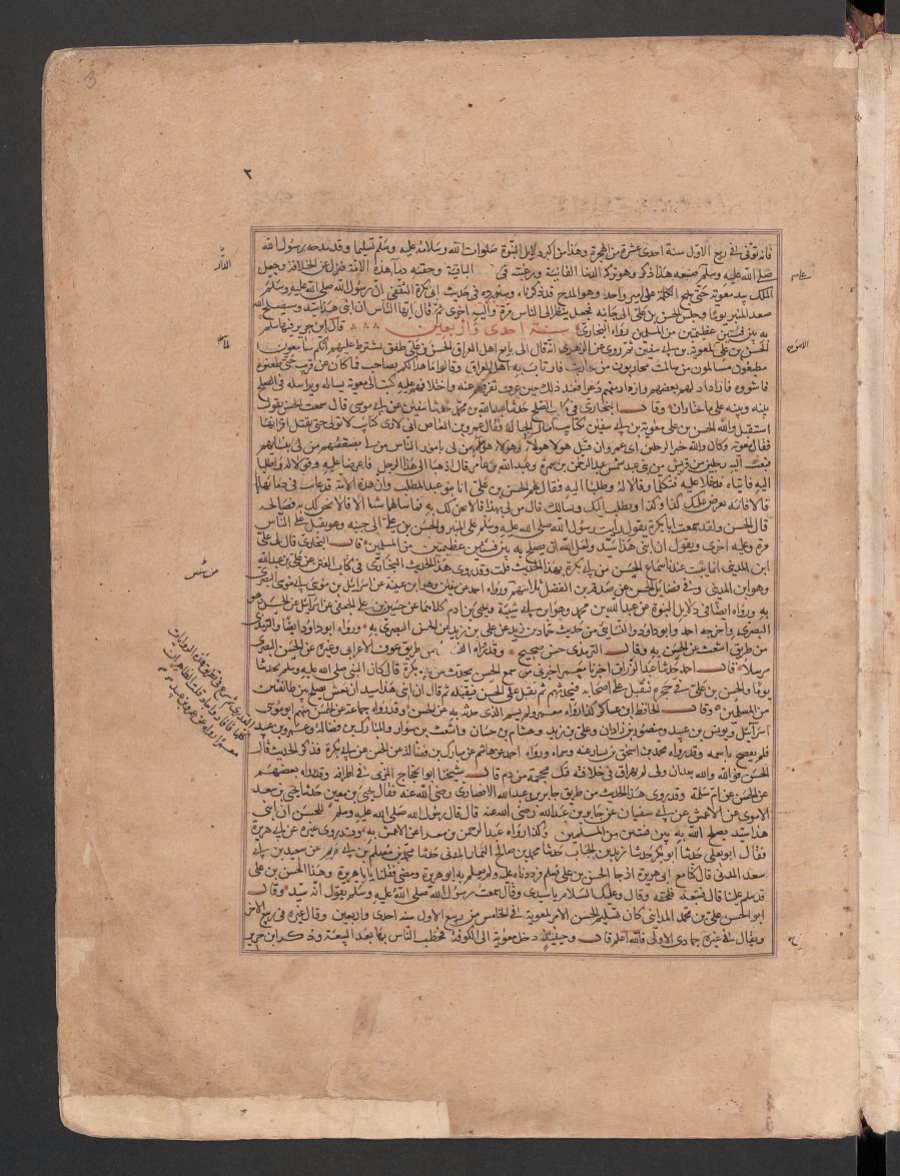 ٢
فانه توفى فى ربيع الاول سنة احدى عشرة من الهجرة وهذا من اكبر دلايل النبوة صلوات الله وسلامه عليه وسلم تسليما وقد مدحه رسول الله
صلى الله عليه وسلم على صنيعه هذا وهو تركه الدنيا الفانية ورغبته فى الباقية وحقنه دماء هذه الامة فنزل عن الخلافة وجعل
الملك بيد معوية حتى تجتمع الكلمة على امير واحد وهو المدح قد ذكرناه وسنورده فى حديث ابى بكرة الثقفى ان رسول الله صلى الله عليه وسلم
صعد المنبر يوما وجلس الحسن بن على الى جانبه فجعل ينظر الى الناس مرة واليه اخرى ثم قال ايها الناس ان ابنى هذا سيد وسيصلح الله
به بين فئتين عظيمتين من المسلمين رواه البخارى سنة احدى واربعين قال ابن جرير فيها سلم
الحسن بن على لمعوية بن ابى سفين ثم روى عن الزهرى انه قال لما بايع اهل العراق الحسن بن على طفق يشترط عليهم انكم سامعون
مطيعون مسالمون من سالمت محاربون من حاربت فارتاب به اهل العراق وقالوا ما هذا لكم بصاحب فما كان عن قريب حتى طعنوه
فاشووه فازداد لهم بغضا وازداد منهم ذعرا فعند ذلك عرف تفرقهم عنه واختلافهم عليه كتب الى معوية يساله ويراسله فى الصلح
بينه وبينه على ما يختاران وقال البخارى فى كتاب الصلح حدثنا عبد الله بن محمد حدثنا سفين عن ابى موسى قال سمعت الحسن يقول
استقبل والله الحسن بن على معوية بن ابى سفين بكتايب امثال الجبال فقال عمرو بن العاص انى لارى كتايب لا تولى حتى تقتل اقرانها
فقال معوية وكان والله خير الرجلين اى عمرو ان قتل هولا هولا وهولا هولا من لى بامور الناس من لى بضعفتهم من لى بنسايهم
فبعث اليه رجلين من قريش من بنى عبد شمس عبد الرحمن بن سمرة وعبد الله بن عامر قال اذهبا الى هذا الرجل فاعرضا عليه وقولا له واطلبا
اليه فاتياه فدخلا عليه فتكلما وقالا له وطلبا اليه فقال لهم الحسن بن على انا بنو عبد المطلب وان هذه الامة قد عاثت فى دمايها
قالا فانه يعرض عليك كذا وكذا ويطلب اليك ويسالك قال من لى بهذا قالا نحن لك به فما سالهما شيا الا قالا نحن لك به فصالحه
قال الحسن ولقد سمعت ابا بكرة يقول رايت رسول الله صلى الله عليه وسلم على المنبر والحسن بن على الى جنبه وهو يقبل على الناس
مرة وعليه اخرى ويقول ان ابنى هذا سيد ولعل الله ان يصلح به بين فئتين عظيمتين من المسلمين قال البخارى قال لى على
ابن المدينى انما ثبت عندنا سماع الحسن من ابى بكرة بهذا الحديث قلت وقد روى هذا الحديث البخارى فى كتاب الفتن عن على بن عبد الله
وهو ابن المدينى وفى فضايل الحسن عن صدقة بن الفضل ثلاثتهم ورواه احمد عن سفين وهو ابن عيينة عن اسرايل بن موسى
به ورواه ايضا فى دلايل النبوة عن عبد الله بن محمد وهو ابن ابى شيبة ويحيى بن ادم كلاهما عن حسين بن على الجعفى عن اسرايل عن الحسن وهو
البصرى واخرجه احمد وابو داود والنسائى من حديث حماد بن زيد عن على بن زيد عن الحسن البصرى به ورواه ابو داود ايضا والترمذى
من طريق اشعث عن الحسن به وقال الترمذى حسن صحيح وقد رواه من طريق عوف الاعرابى وغيره عن الحسن البصرى
مرسلا وقال احمد حدثنا عبد الرزاق اخبرنا معمر اخبرنى من سمع الحسن يحدث عن ابى بكرة قال كان النبى صلى الله عليه وسلم يحدثنا
يوما والحسن بن على فى حجره فيقبل على اصحابه فيحدثهم ثم يقبل على الحسن فيقبله ثم قال ان ابنى هذا سيد ان يعش يصلح بين طايفتين
من المسلمين وقال الحافظ ابن عساكر كذا رواه معمر ولم يسم الذى حدثه به عن الحسن وقد رواه جماعة عن الحسن منهم ابو موسى
اسرايل ويونس بن عبيد ومنصور بن زادان وعلى بن زيد وهشام بن حسان واشعث بن سوار والمبارك بن فضالة وعمرو بن عبيد
الحسن فوالله والله بعد ان ولى لم يهراق فى خلافته ملء محجمة من دم قال شيخنا ابو الحجاج المزى فى اطرافه وقد رواه بعضهم
عن الحسن عن ام سلمة وقد روى هذا الحديث من طريق جابر بن عبد الله الانصارى رضى الله عنه فقال يحيى بن معين حدثنا يحيى بن سعيد
الاموى عن الاعمش عن ابى سفيان عن جابر بن عبد الله رضى الله عنه قال قال رسول الله صلى الله عليه وسلم للحسن ان ابنى
هذا سيد يصلح الله به بين فئتين من المسلمين وكذا رواه عبد الرحمن بن معمر عن الاعمش به وقد روى عن ابى هريرة
فقال ابو يعلى حدثنا ابو بكر حدثنا زيد بن الحباب حدثنا محمد بن صالح التمار المدنى حدثنا محمد بن مسلم بن ابى مريم عن سعيد بن ابى
سعيد المدنى قال كنا مع ابى هريرة اذ جا الحسن بن على فسلم فرددنا عليه ولم يعلم به ابو هريرة ومضى فقلنا يا ابا هريرة هذا الحسن بن على
قد سلم علينا قال فتبعه فلحقه وقال وعليك السلام يا سيدى وقال سمعت رسول الله صلى الله عليه وسلم يقول انه سيد وقال
ابو الحسن على بن محمد المداينى كان تسليم الحسن الامر لمعوية فى الخامس من ربيع الاول سنة احدى واربعين وقال غيره فى ربيع الاخر
ويقال فى غرة جمادى الاولى فالله اعلم قال وحينئذ دخل معوية الى الكوفة فخطب الناس بها بعد البيعة وذكر ابن جرير